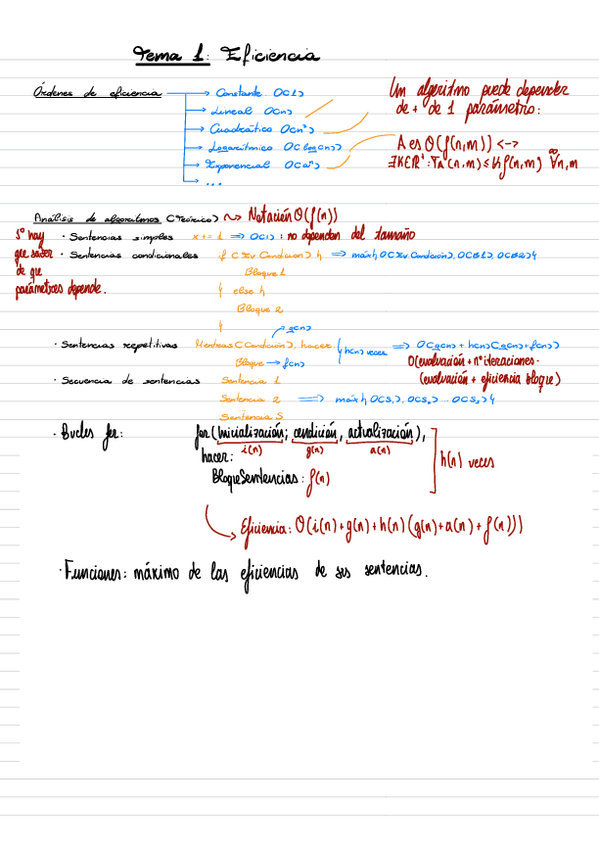 Tema 1: Eficiencia
Órdenes de eficiencia
Constante O(1)
Lineal O(n)
Cuadrático O(n²)
Logarítmico O(log(n))
Exponencial O(aⁿ)
...
Un algoritmo puede depender
de + de 1 parámetro:
A es O(f(n,m)) <->
∃K∈R⁺: T_A(n,m) ≤ K f(n,m) ∀n,m
Análisis de algoritmos (Teórico) ~> Notación O(f(n))
1º hay
que saber
de que
parámetros depende.
· Sentencias simples x += 1 => O(1): no dependen del tamaño
· Sentencias condicionales if (Ev.Condición) { => máx{O(Ev.Condición), O(B1), O(B2)}
Bloque 1
} else {
Bloque 2
}
g(n)
· Sentencias repetitivas Mientras (Condición), hacer: } h(n) veces => O(g(n) + h(n)(g(n)+f(n)))
Bloque -> f(n)
O(evaluación + nº iteraciones ·
(evaluación + eficiencia bloque)
· Secuencia de sentencias Sentencia 1
Sentencia 2 => máx{O(S₁), O(S₂) ... O(Sₛ)}
Sentencia S
· Bucles for: for (inicialización; condición, actualización),
i(n) g(n) a(n)
hacer:
BloqueSentencias: f(n)
h(n) veces
Eficiencia: O(i(n)+g(n)+h(n)(g(n)+a(n)+f(n)))
· Funciones: máximo de las eficiencias de sus sentencias.